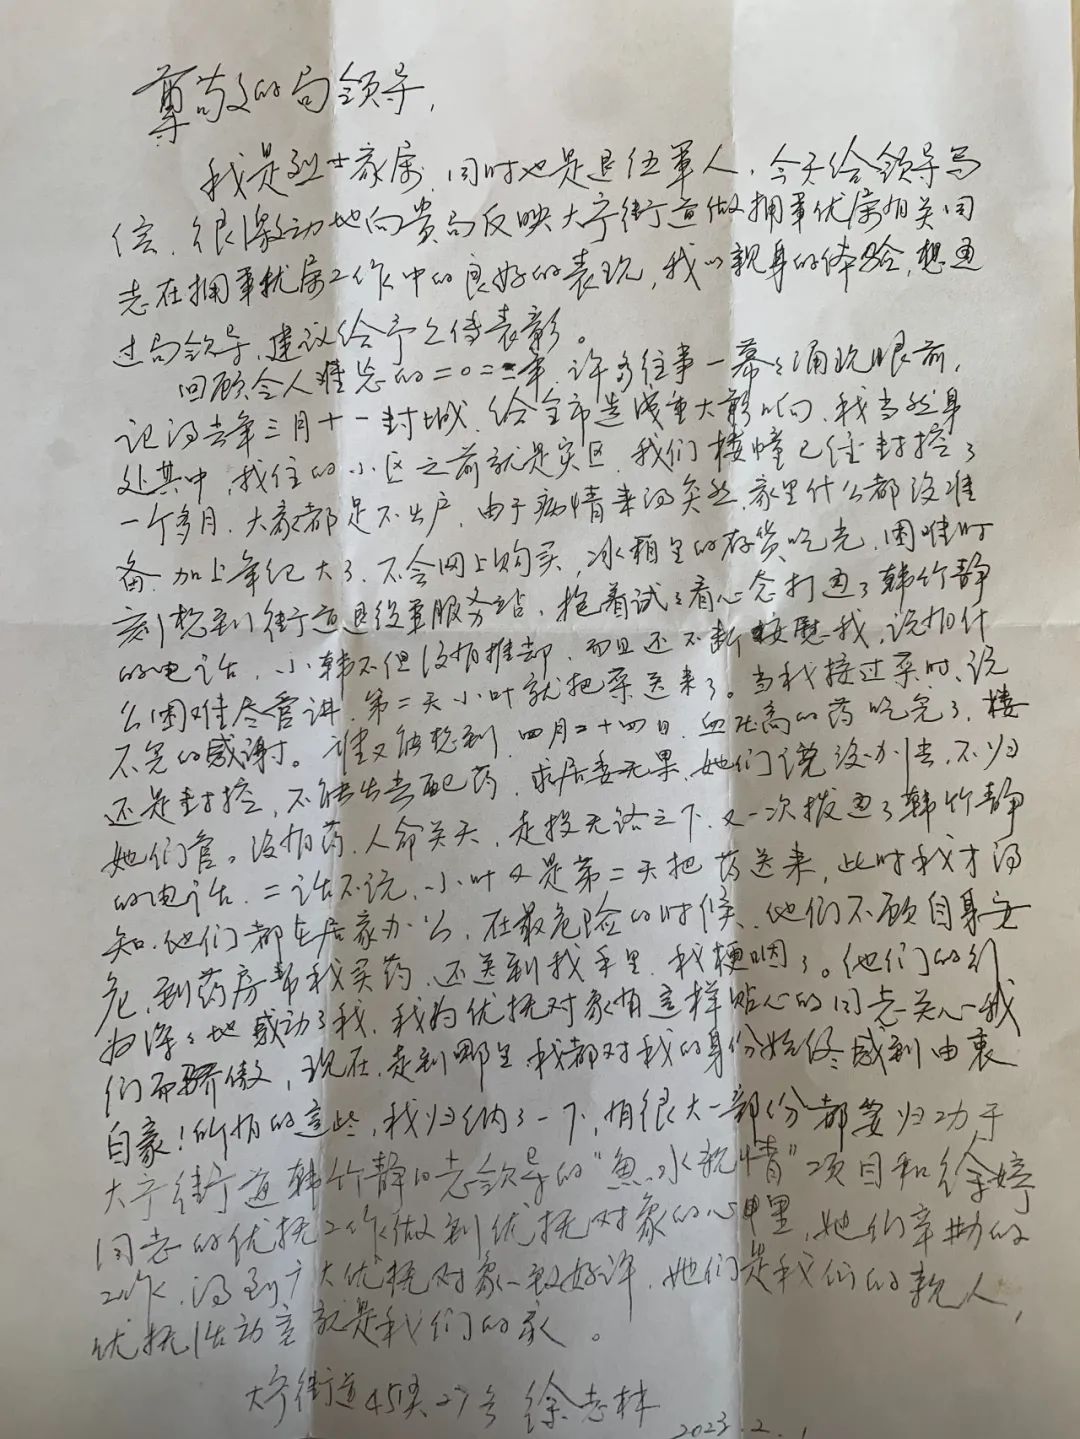 尊敬的局领导，
我是烈士家属，同时也是退伍军人，今天给领导写
信，很激动地向贵局反映大宁街道做拥军优属相关同
志在拥军优属工作中的良好的表现，我以亲身的体验，想通
过局领导，建议给予上传表彰。
回顾令人难忘的二0二二年，许多往事一幕幕涌现眼前，
记得去年三月十一封城，给全市造成重大影响，我当然身
处其中，我住的小区之前就是灾区，我们楼幢已经封控了
一个多月，大家都足不出户，由于病情来得突然，家里什么都没准
备，加上年纪大了，不会网上购买，冰箱里的存货吃光，困难时
刻想到街道退役军服务站，抱着试试看心念打通了韩竹静
的电话，小韩不但没有推却，而且还不断接慰我，说有什
么困难尽管讲，第二天小叶就把菜送来了。当我接过菜时，说
不完的感谢。谁又能想到，四月二十四日，血压高的药吃完了，楼
还是封控，不能出去配药，求居委无果，她们说没办法，不归
她们管。没有药，人命关天，走投无路之下，又一次拨通了韩竹静
的电话，二话不说，小叶又是第二天把药送来，此时我才得
知，他们都在居家办公，在最危险的时候，他们不顾自身安
危，到药房帮我买药，还送到我手里，我梗咽了。他们的行
为深深地感动了我，我为优抚对象有这样贴心的同志关心我
们而骄傲，现在，走到哪里，我都对我的身份始终感到由衷
自豪！所有的这些，我归纳了一下，有很大一部份都要归功于
大宁街道韩竹静同志领导的“魚水親情”项目和徐婷
同志的优抚工作做到优抚对象的心里，她们辛勤的
工作，得到广大优抚对象一致好评，她们是我们的親人，
优抚活动室就是我们的家。
大宁街道451弄27号 徐志林 2023.2.1